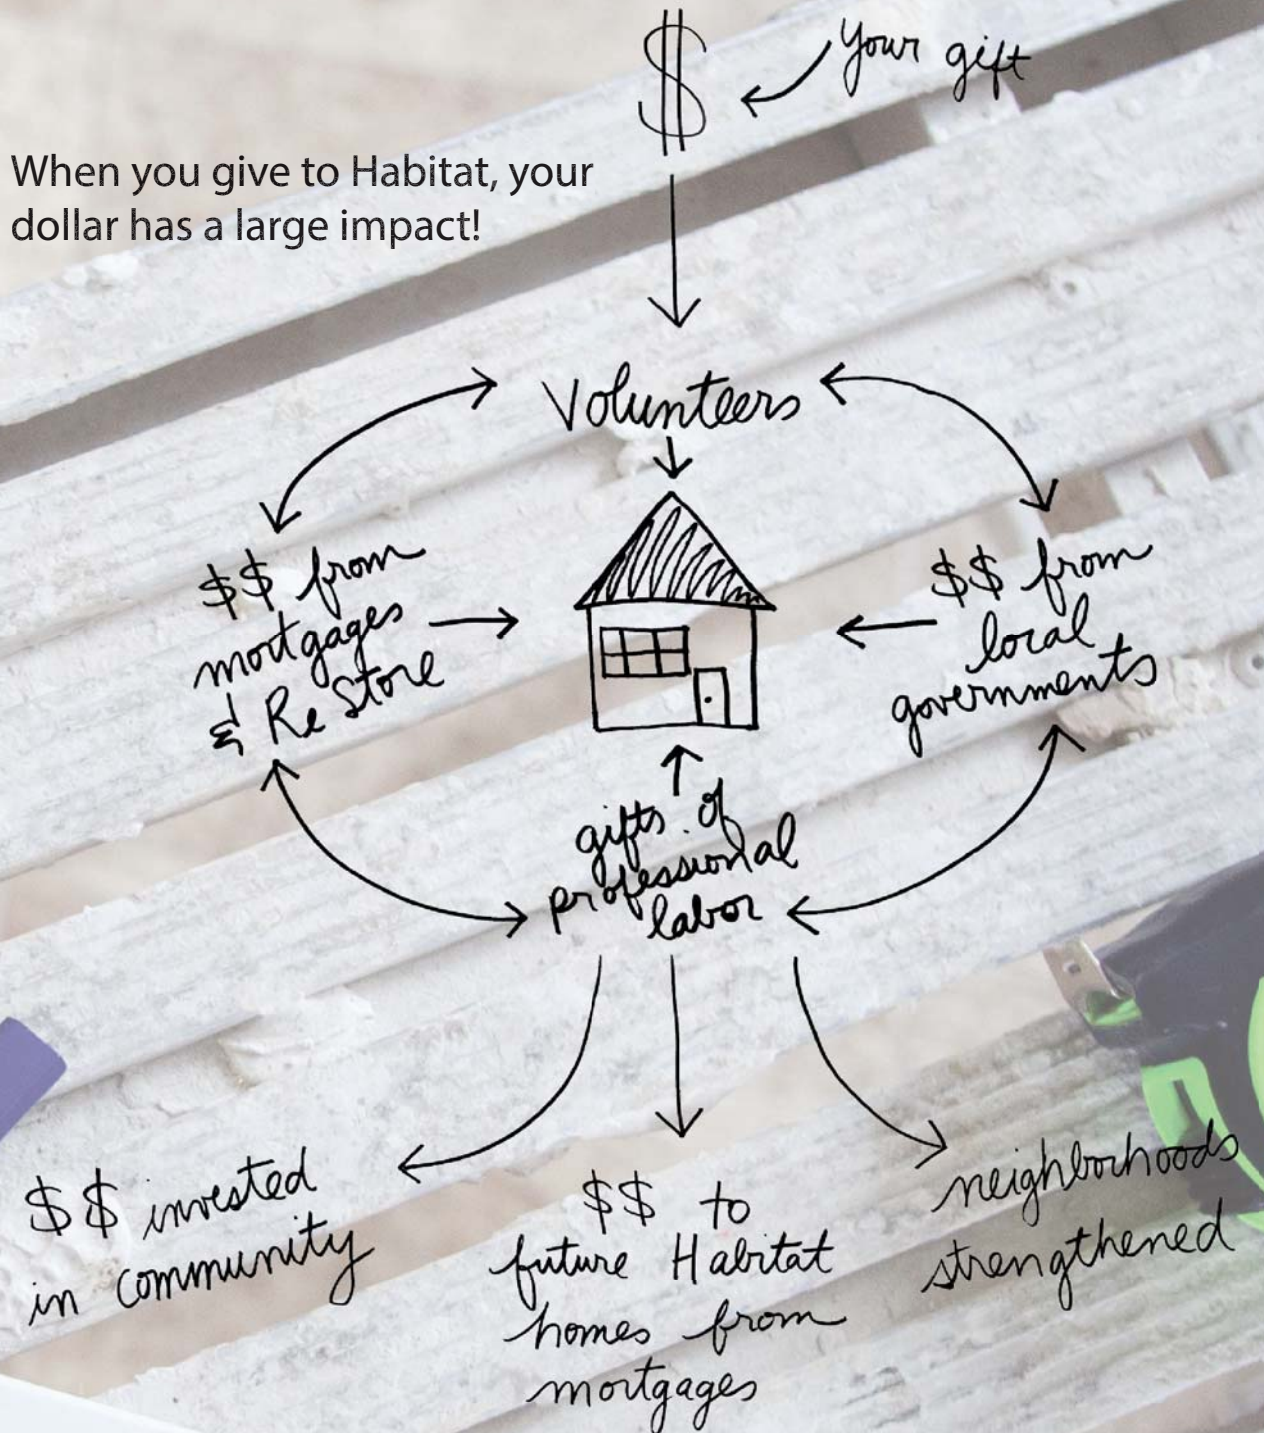 $
Your gift
When you give to Habitat, your
dollar has a large impact!
Volunteers
$$ from
mortgages
& ReStore
$$ from
local
governments
gifts of
professional
labor
$$ invested
in community
$$ to
future Habitat
homes from
mortgages
neighborhoods
strengthened